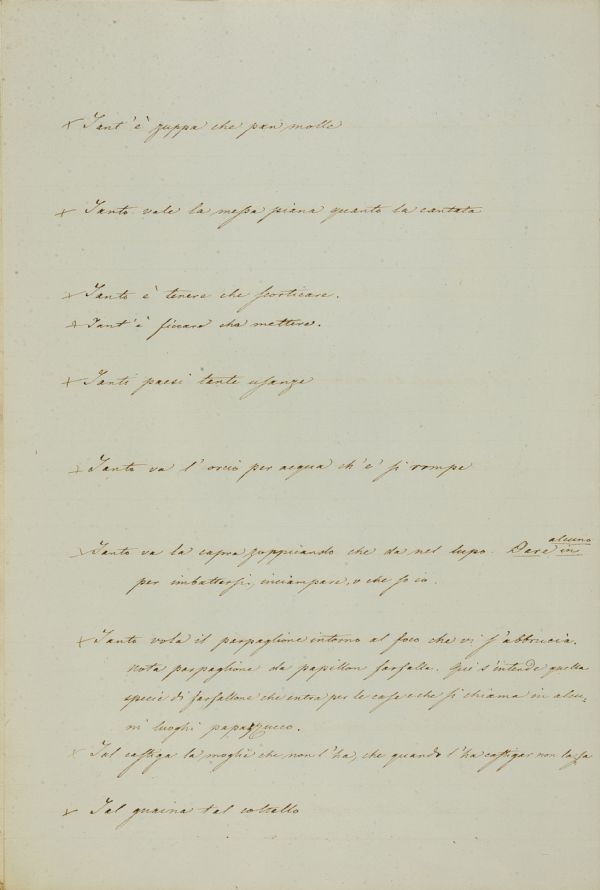 × Tant'è zuppa che pan molle
× Tanto vale la messa piana quanto la cantata
× Tanto è tenere che scorticare.
× Tant'è ficcare che mettere.
× Tanti paesi tante usanze
× Tanto va l'orcio per acqua ch'e' si rompe
× Tanto va la capra zoppicando che da nel lupo. Dare in alcuno
per imbattersi, inciampare, o che so io.
× Tanto vola il parpaglione intorno al foco che vi s'abbrucia.
nota parpaglione da papillon farfalla. Qui s'intende quella
specie di farfallone che entra per le case e che si chiama in alcu-
ni luoghi papazzucco.
× Tal castiga la moglie che non l'ha, che quando l'ha castigar non la sa
× Tal guaina tal coltello